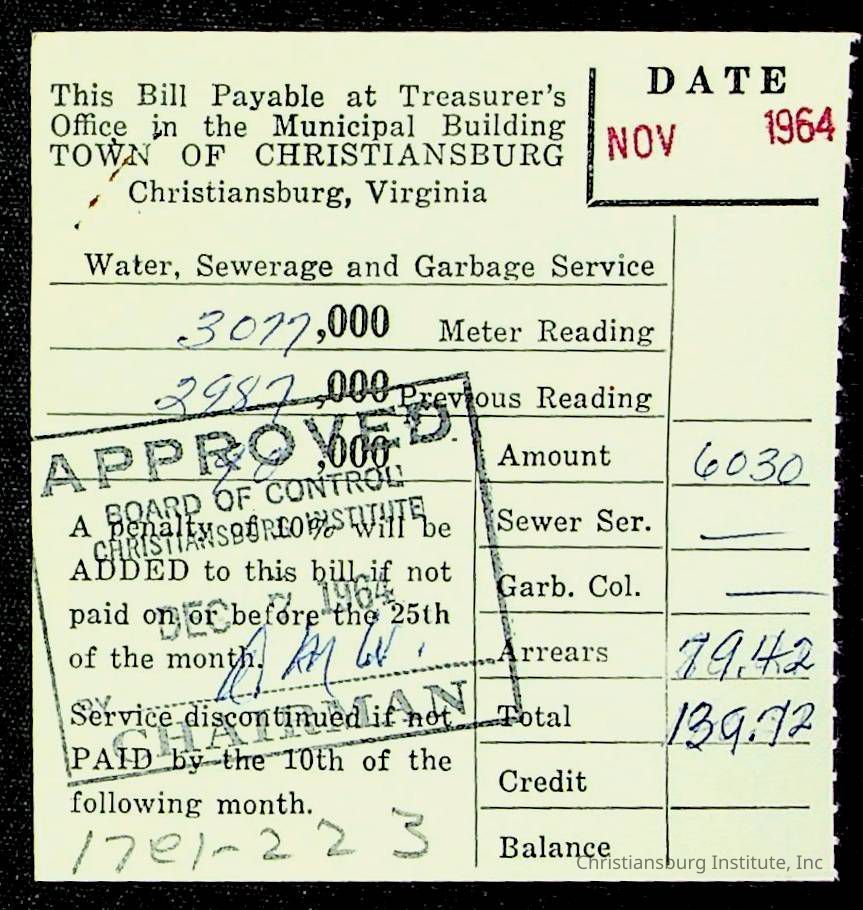 This Bill Payable at Treasurer's
Office in the Municipal Building
TOWN OF CHRISTIANSBURG
Christiansburg, Virginia
DATE
NOV 1964
Water, Sewerage and Garbage Service
3077,000 Meter Reading
2987,000 Previous Reading
90,000
Amount 6030
Sewer Ser. —
Garb. Col. —
Arrears 79.42
Total 139.72
Credit
Balance
A penalty of 10% will be
ADDED to this bill if not
paid on or before the 25th
of the month.
Service discontinued if not
PAID by the 10th of the
following month.
APPROVED
BOARD OF CONTROL
CHRISTIANSBURG INSTITUTE
DEC 1964
BY
CHAIRMAN
1701-223
Christiansburg Institute, Inc